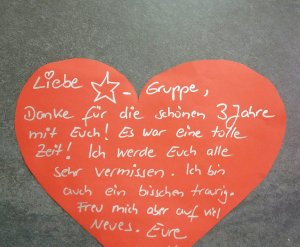 Liebe ☆-Gruppe,
Danke für die schönen 3 Jahre
mit Euch! Es war eine tolle
Zeit! Ich werde Euch alle
sehr vermissen. Ich bin
auch ein bisschen traurig.
Freu mich aber auf viel
Neues. Eure